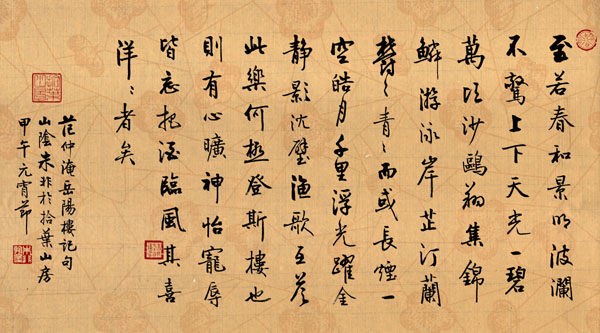 至若春和景明波瀾
不驚上下天光一碧
萬頃沙鷗翔集錦
鱗游泳岸芷汀蘭
鬱〻青〻而或長煙一
空皓月千里浮光躍金
靜影沈璧漁歌互答
此樂何極登斯樓也
則有心曠神怡寵辱
皆忘把酒臨風其喜
洋〻者矣
范仲淹岳陽樓記句
山陰朱非於拾葉山房
甲午元宵節